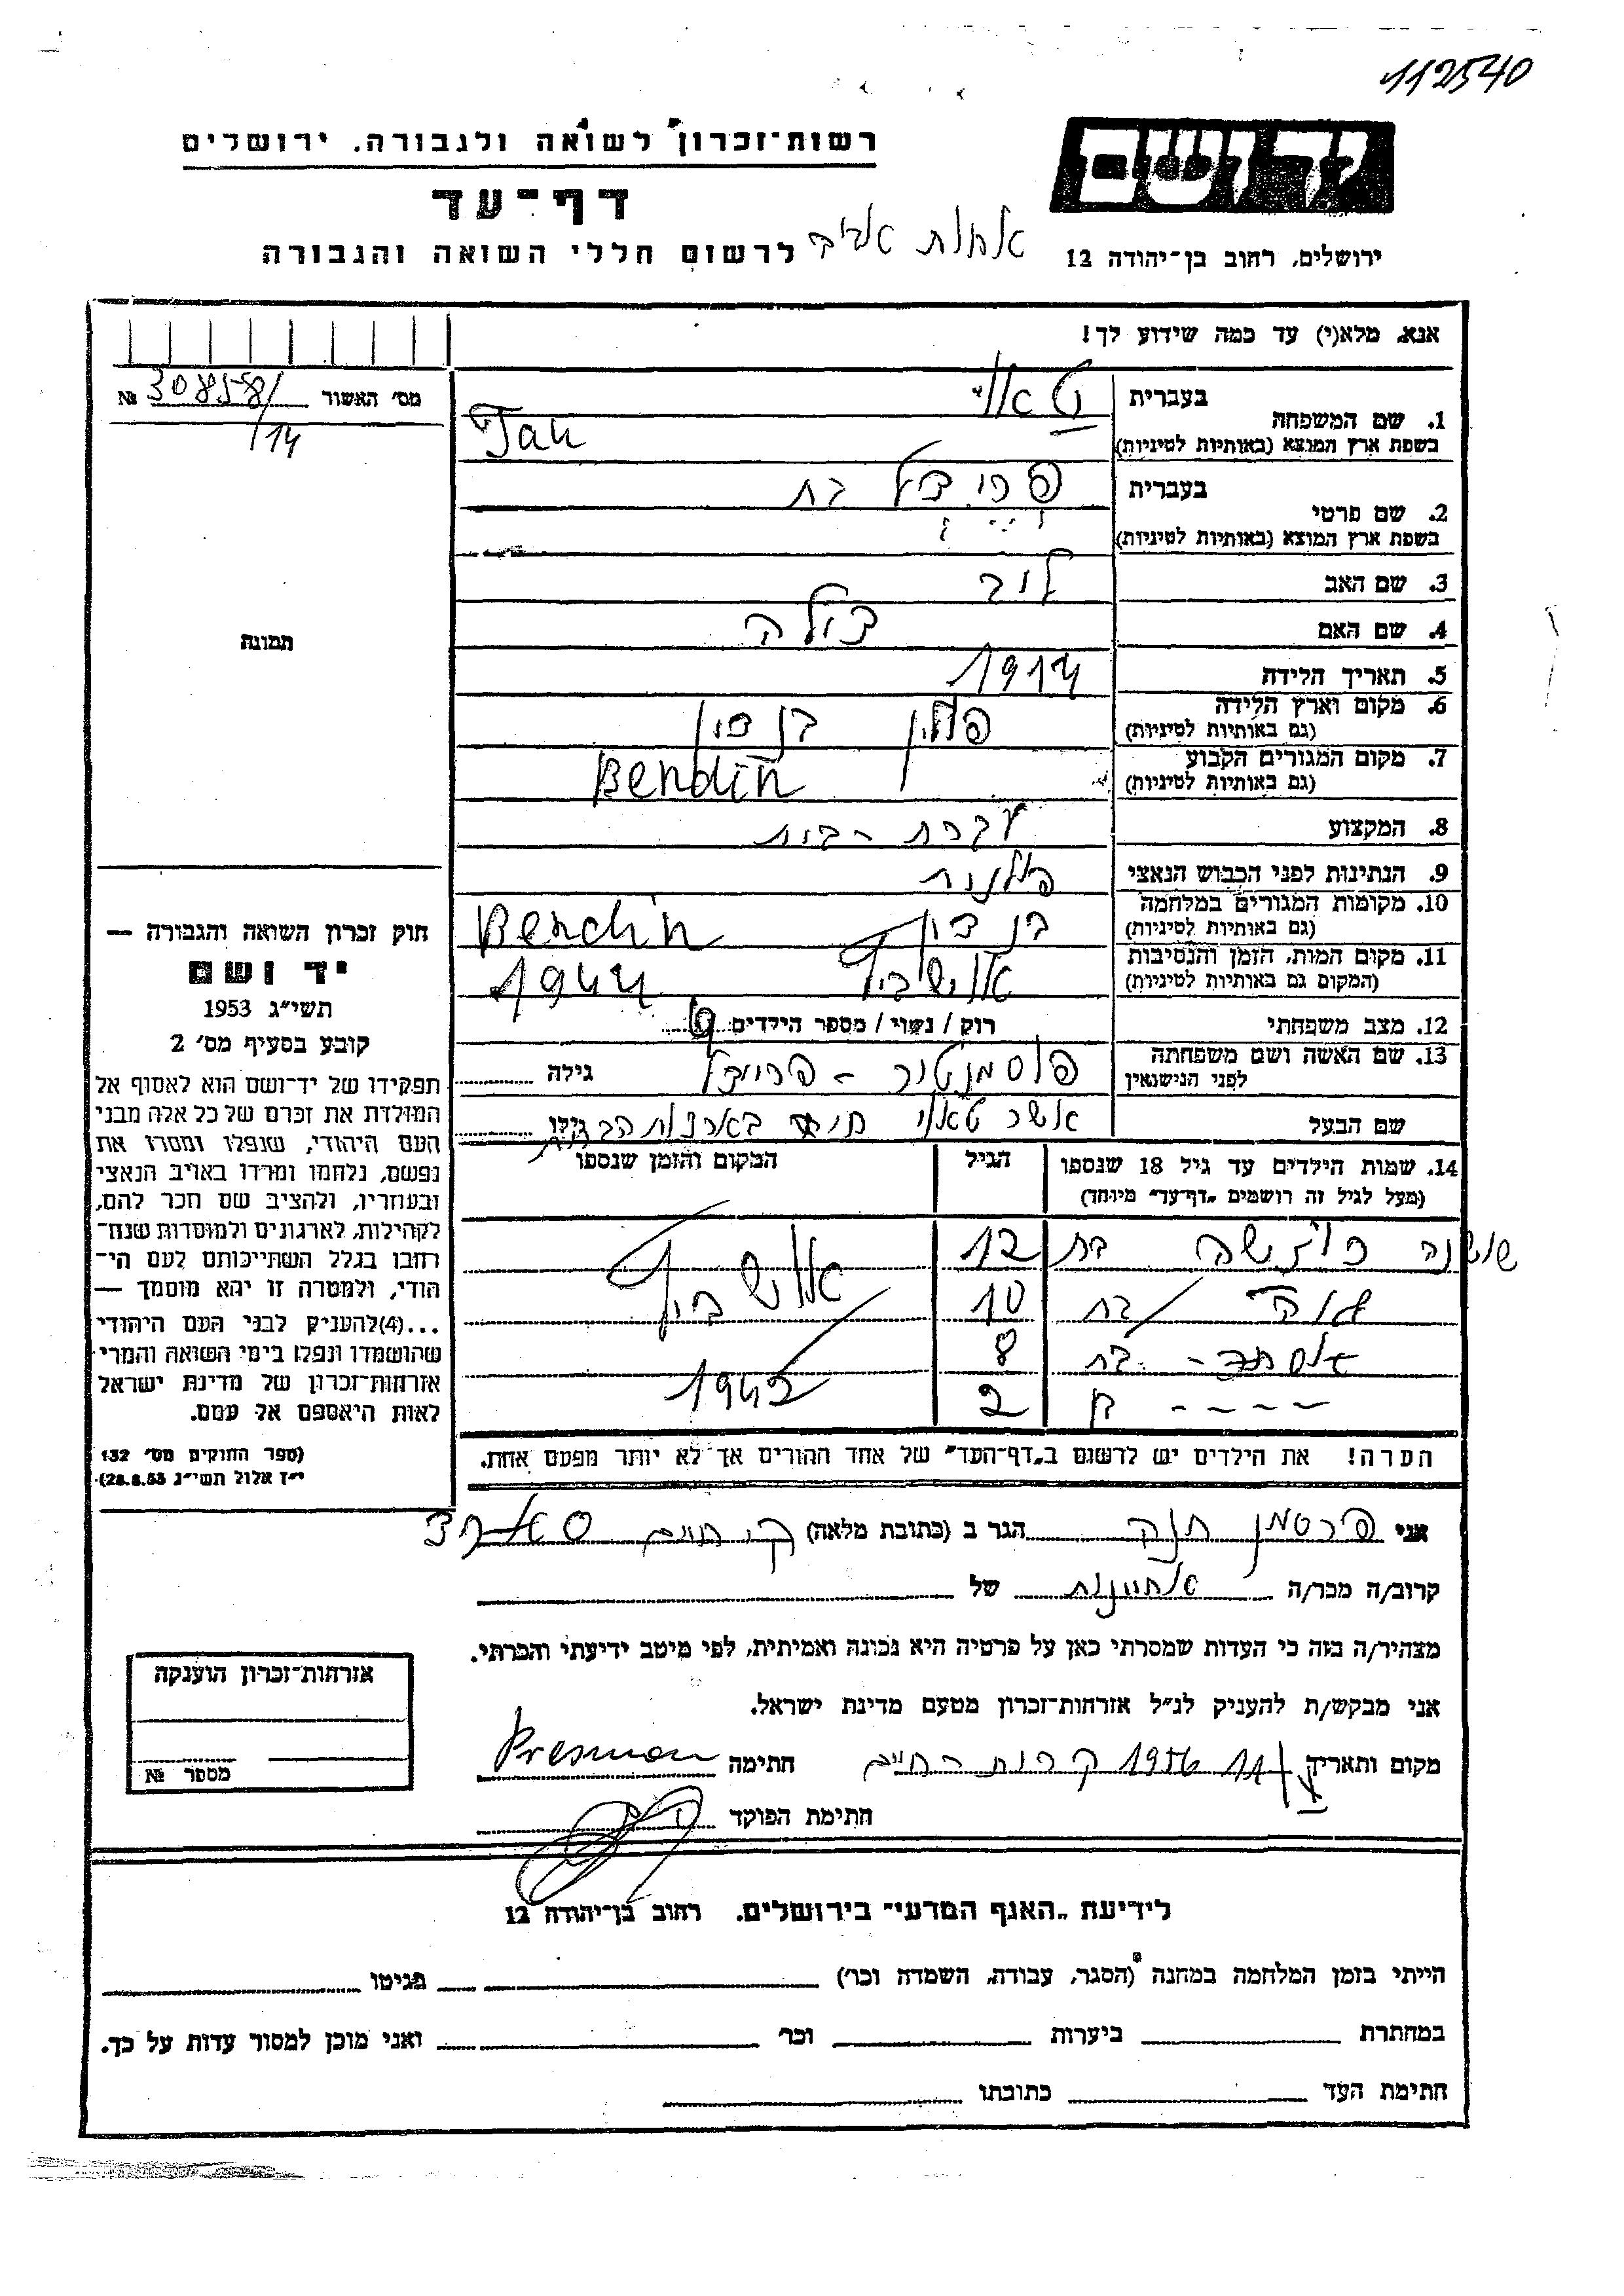 112540
יד ושם
רשות־זכרון לשואה ולגבורה. ירושלים
דף־עד
לרשום חללי השואה והגבורה
ירושלים, רחוב בן־יהודה 12
אנא, מלא(י) עד כמה שידוע לך!
מס׳ האשור № 308581/14
1. שם המשפחה
בעברית
בשפת ארץ המוצא (באותיות לטיניות) Tau
2. שם פרטי
בעברית בת
בשפת ארץ המוצא (באותיות לטיניות)
3. שם האב ליב
4. שם האם
תמונה
5. תאריך הלידה 1914
6. מקום וארץ הלידה פולין בנדין
(גם באותיות לטיניות)
7. מקום המגורים הקבוע Bendin
(גם באותיות לטיניות)
8. המקצוע עקרת-בית
9. הנתינות לפני הכבוש הנאצי פולנית
10. מקומות המגורים במלחמה בנדין Bendin
(גם באותיות לטיניות)
11. מקום המות, הזמן והנסיבות אושביץ 1944
(המקום גם באותיות לטיניות)
12. מצב משפחתי רוק / נשוי / מספר הילדים
13. שם האשה ושם משפחתה
לפני הנישואין גילה
שם הבעל אשר גילו
14. שמות הילדים עד גיל 18 שנספו הגיל המקום והזמן שנספו
(מעל לגיל זה רושמים „דף־עד״ מיוחד)
שושנה בת 12 אושביץ
בת 10
אסתר - בת 8 1942
בן ---- 2
הערה! את הילדים יש לרשום ב„דף־העד״ של אחד ההורים אך לא יותר מפעם אחת.
חוק זכרון השואה והגבורה —
יד ושם
תשי״ג 1953
קובע בסעיף מס׳ 2
תפקידו של יד־ושם הוא לאסוף אל
המולדת את זכרם של כל אלה מבני
העם היהודי, שנפלו ומסרו את
נפשם, נלחמו ומרדו באויב הנאצי
ובעוזריו, ולהציב שם וזכר להם,
לקהילות, לארגונים ולמוסדות שנח־
רבו בגלל השתייכותם לעם הי־
הודי, ולמטרה זו יהא מוסמך —
...(4)להעניק לבני העם היהודי
שהושמדו ונפלו בימי השואה והמרי
אזרחות־זכרון של מדינת ישראל
לאות היאספם אל עמם.
(ספר החוקים מס׳ 132
י״ז אלול תשי״ג 28.8.53)
אני חנה הגר ב (כתובת מלאה) קר׳ חיים
קרוב/ה מכר/ה של
מצהיר/ה בזה כי העדות שמסרתי כאן על פרטיה היא נכונה ואמיתית, לפי מיטב ידיעתי והכרתי.
אני מבקש/ת להעניק לנ״ל אזרחות־זכרון מטעם מדינת ישראל.
מקום ותאריך 1956 קרית-חיים חתימה Presman
חתימת הפוקד
אזרחות־זכרון הוענקה
מספר №
לידיעת „האגף המדעי״ בירושלים. רחוב בן־יהודה 12
הייתי בזמן המלחמה במחנה (הסגר, עבודה, השמדה וכו׳) בגיטו
במחתרת ביערות וכו׳ ואני מוכן למסור עדות על כך.
חתימת העד כתובתו